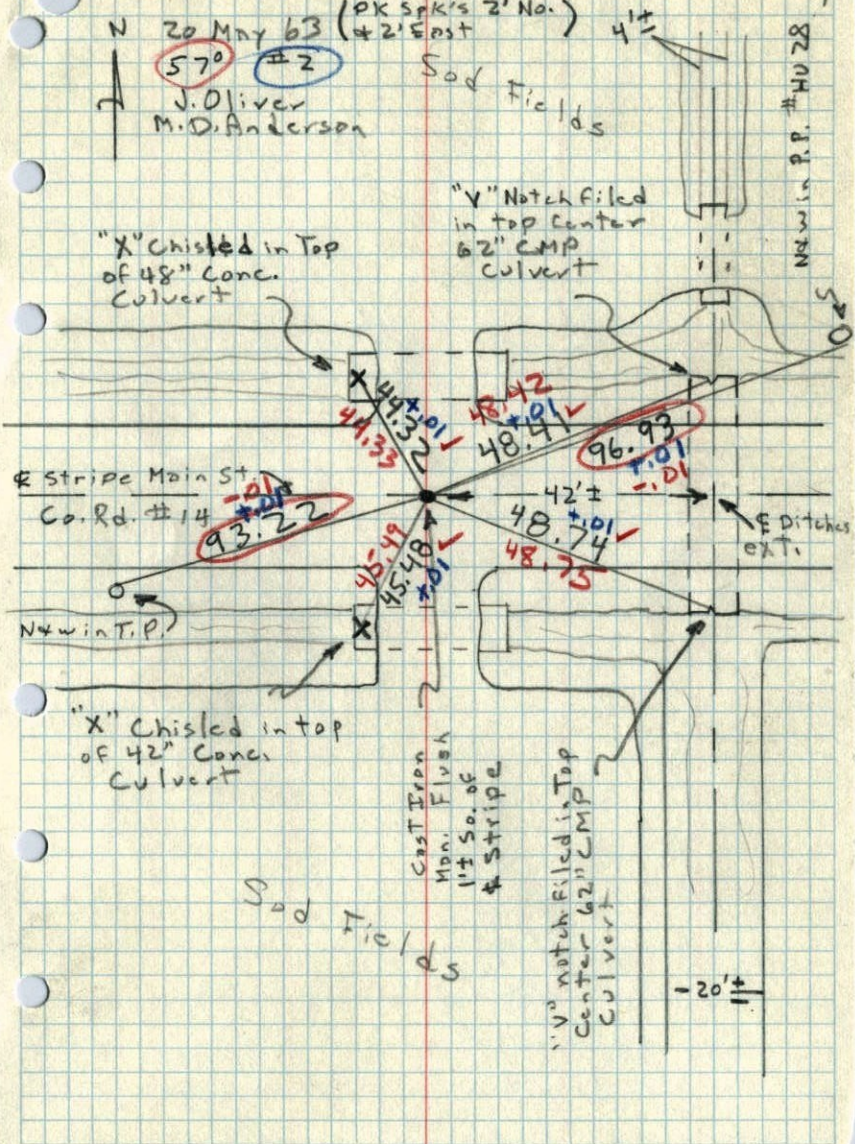 N
20 May 63
(PK Spk's 2' No.
& 2' East)
57° #2
J. Oliver
M.D. Anderson
Sod Fields
4'±
N&W in P.P. #HU 28
"V" Notch filed
in top Center
62" CMP
Culvert
"X" Chisled in Top
of 48" Conc.
Culvert
X
44.32
+.01
44.33
48.42
+.01
48.41
96.93
+.01
-.01
℄ Stripe Main St.
Co. Rd. #14
-.01
+.01
93.22
42'±
48.74
+.01
48.75
℄ Ditches
ext.
45.49
45.48
+.01
N&W in T.P.
X
"X" Chisled in top
of 42" Conc.
Culvert
Cast Iron
Mon. Flush
1'± So. of
℄ Stripe
"V" notch filed in Top
Center 62" CMP
Culvert
Sod Fields
-20'±